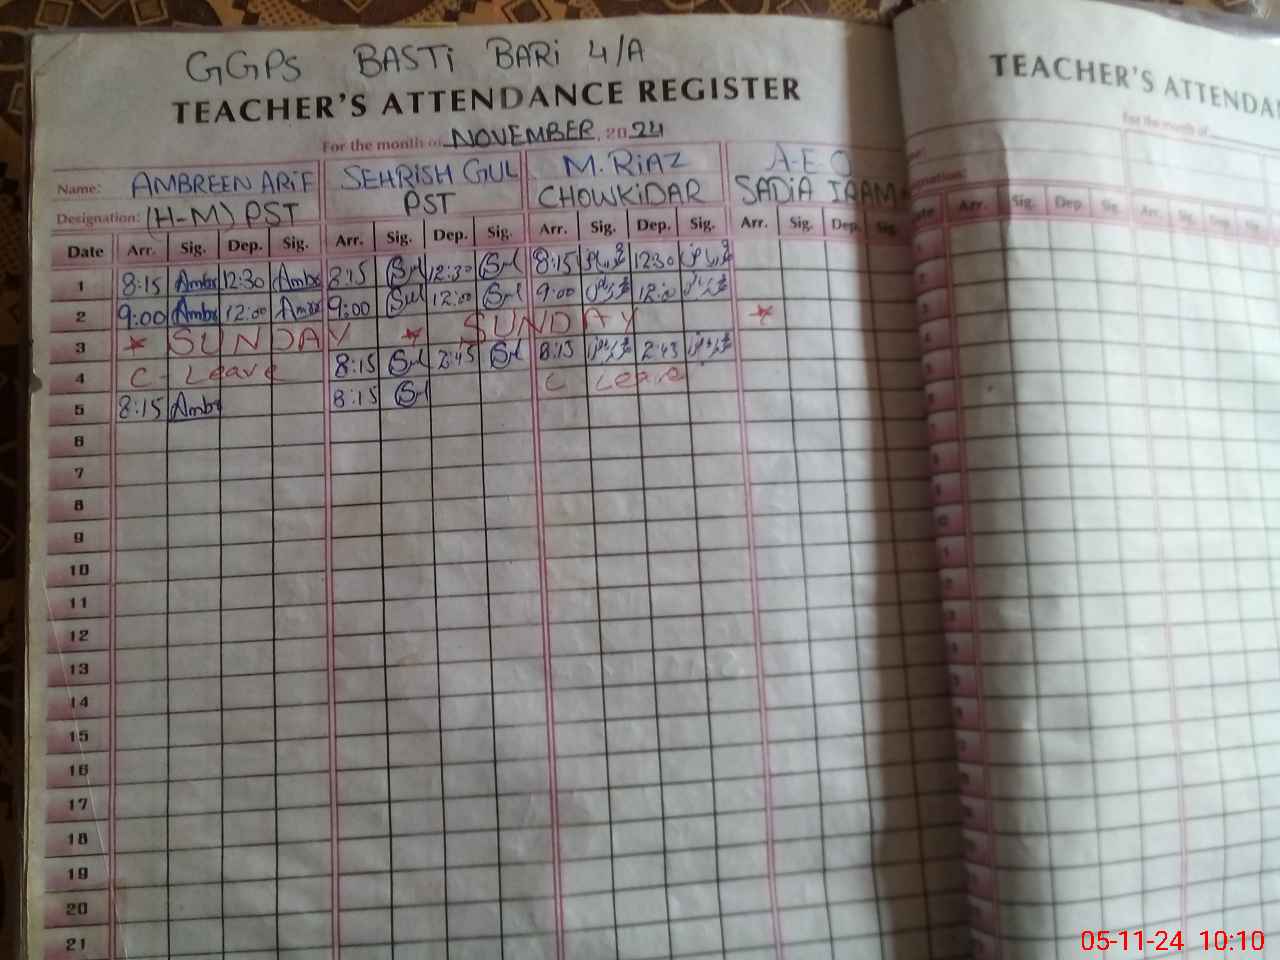 GGPS BASTi BARi 4/A
TEACHER'S ATTENDANCE REGISTER
For the month of NOVEMBER 2024
Name: AMBREEN ARiF SEHRISH GUL M. RiAZ A-E O
Designation: (H-M) PST PST CHOWKiDAR SADiA IRAM
Date Arr. Sig. Dep. Sig. Arr. Sig. Dep. Sig. Arr. Sig. Dep. Sig. Arr. Sig. Dep. Sig.
1 8:15 Ambr 12:30 Ambr 8:15 12:30 8:15 12:30
2 9:00 Ambr 12:00 Ambr 9:00 12:00 9:00 12:00
3 * SUNDAY * SUNDAY *
4 C- Leave 8:15 2:45 8:15 2:45
5 8:15 Ambr 8:15 C Leave
6
7
8
9
10
11
12
13
14
15
16
17
18
19
20
21
TEACHER'S ATTENDA
For the month of
Arr. Sig. Dep. Sig. Arr. Sig. Dep. Sig.
05-11-24 10:10